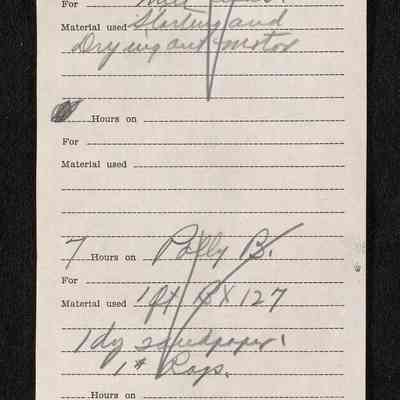 For
Material used Starting and
Drying out motor
Hours on
For
Material used
7 Hours on Polly B.
For
Material used 1 pt R X 127
1 dz sandpaper.
1 # Rags.
Hours on